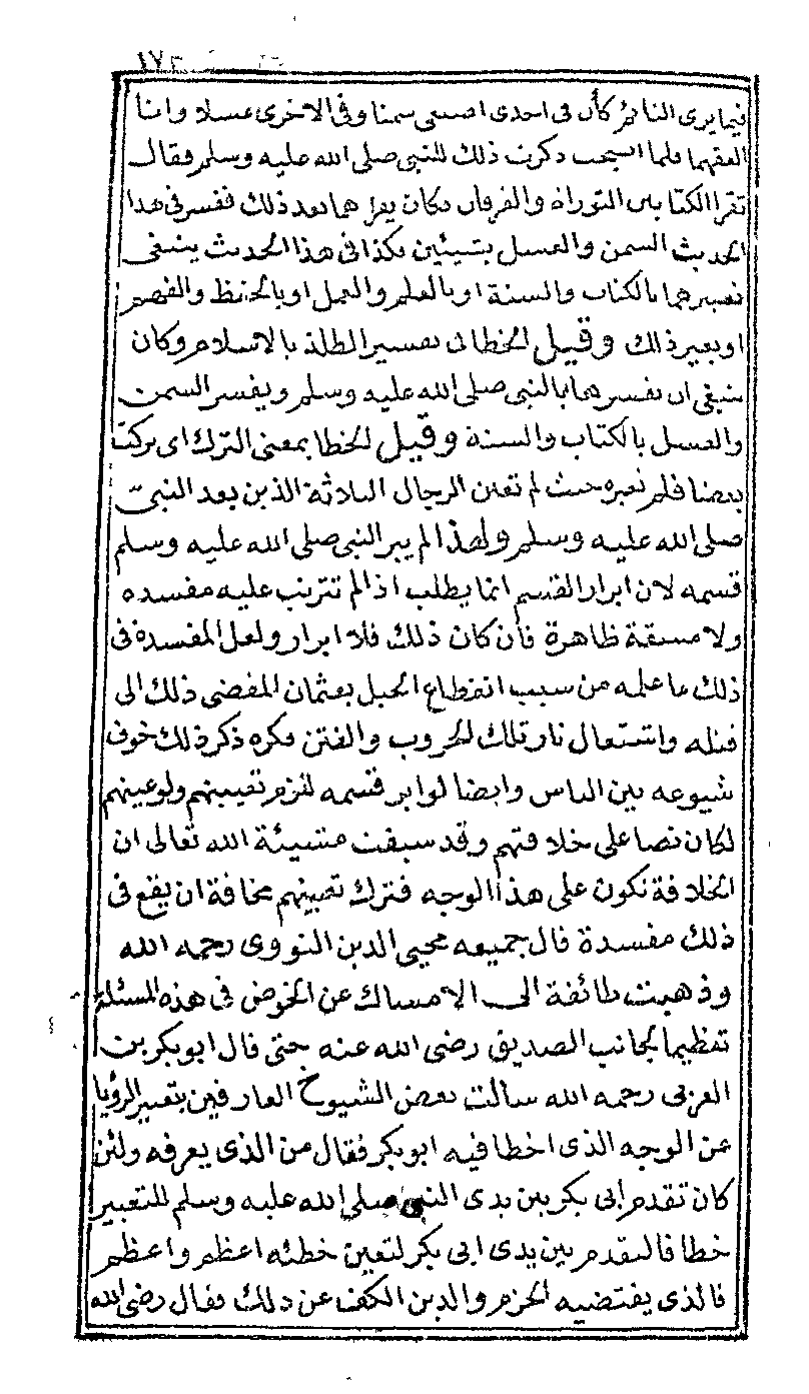 ١٧٣
فيما يرى النائم كأن في احدى اصبعى سمنا وفى الاخرى عسلا وانا
العقهما فلما اصبحت ذكرت ذلك للنبى صلى الله عليه وسلم فقال
تقرا الكتابين التوراة والفرقان فكان يقراهما بعد ذلك ففسر فى هذا
الحديث السمن والعسل بشيئين فكذا فى هذا الحديث ينبغى
تفسيرهما بالكتاب والسنة او بالعلم والعمل او بالحفظ والفهم
او بغير ذلك وقيل الخطا فى تفسير الظلة بالاسلام وكان
ينبغى ان يفسرها بالنبى صلى الله عليه وسلم ويفسر السمن
والعسل بالكتاب والسنة وقيل الخطا بمعنى الترك اى تركت
بعضا فلم تعبره حيث لم تعين الرجال الثلاثة الذين بعد النبى
صلى الله عليه وسلم ولهذا لم يبر النبى صلى الله عليه وسلم
قسمه لان ابرار القسم انما يطلب اذا لم تترتب عليه مفسده
ولا مشقة ظاهرة فان كان ذلك فلا ابرار ولعل المفسدة فى
ذلك ما علمه من سبب انقطاع الحبل بعثمان المفضى ذلك الى
قتله واشتعال نار تلك الحروب والفتن فكره ذكر ذلك خوف
شيوعه بين الناس وايضا لو ابر قسمه لزم تعيينهم ولو عينهم
لكان نصا على خلافتهم وقد سبقت مشيئة الله تعالى ان
الخلافة تكون على هذا الوجه فترك تعيينهم مخافة ان يقع فى
ذلك مفسدة قال جميعه محيى الدين النووى رحمه الله
وذهبت طائفة الى الامساك عن الخوض فى هذه المسئلة
تعظيما لجانب الصديق رضى الله عنه حتى قال ابو بكر بن
العربى رحمه الله سالت بعض الشيوخ العارفين بتعبير الرؤيا
عن الوجه الذى اخطا فيه ابو بكر فقال من الذى يعرفه ولئن
كان تقدم ابى بكر بين يدى النبى صلى الله عليه وسلم للتعبير
خطا فالتقدم بين يدى ابى بكر لتعين خطئه اعظم واعظم
فالذى يقتضيه الحزم والدين الكف عن ذلك فقال رضى الله